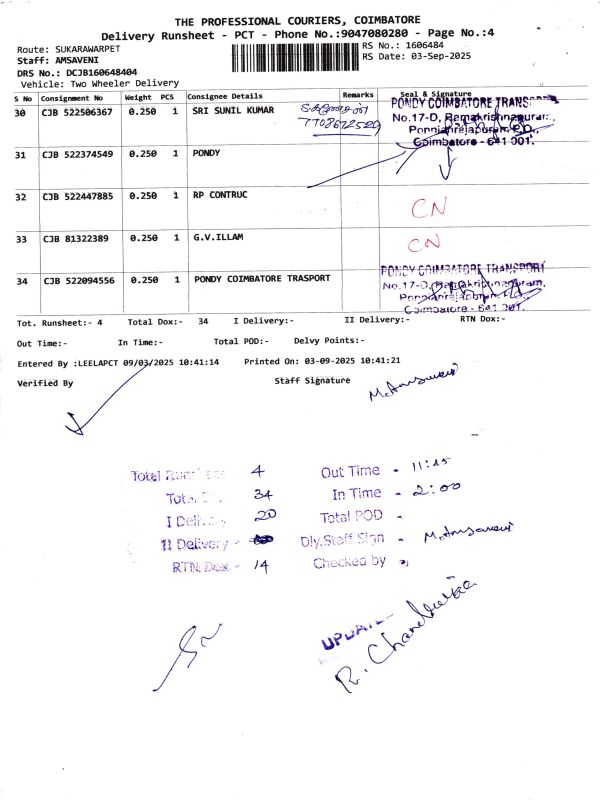 THE PROFESSIONAL COURIERS, COIMBATORE
Delivery Runsheet - PCT - Phone No.:9047080280 - Page No.:4
Route: SUKARAWARPET
RS No.: 1606484
Staff: AMSAVENI
RS Date: 03-Sep-2025
DRS No.: DCJB160648404
Vehicle: Two Wheeler Delivery
S No Consignment No Weight PCS Consignee Details Remarks Seal & Signature
30 CJB 522506367 0.250 1 SRI SUNIL KUMAR
7708672529
PONDY COIMBATORE TRANSPORT
No.17-D, Ramakrishnapuram,
Ponnianrajapuram, P.O.,
Coimbatore - 641 001.
31 CJB 522374549 0.250 1 PONDY
32 CJB 522447885 0.250 1 RP CONTRUC CN
33 CJB 81322389 0.250 1 G.V.ILLAM CN
34 CJB 522094556 0.250 1 PONDY COIMBATORE TRASPORT
PONDY COIMBATORE TRANSPORT
No.17-D, Ramakrishnapuram,
Ponnianrajapuram, P.O.,
Coimbatore - 641 001.
Tot. Runsheet:- 4 Total Dox:- 34 I Delivery:- II Delivery:- RTN Dox:-
Out Time:- In Time:- Total POD:- Delvy Points:-
Entered By :LEELAPCT 09/03/2025 10:41:14 Printed On: 03-09-2025 10:41:21
Verified By Staff Signature M.Amsaveni
Total Runsheet - 4 Out Time - 11:45
Total Dox 34 In Time - 2:00
I Delivery 20 Total POD -
II Delivery - Dly.Staff Sign - M.Amsaveni
RTN Dox - 14 Checked by -
UPDATE
R.